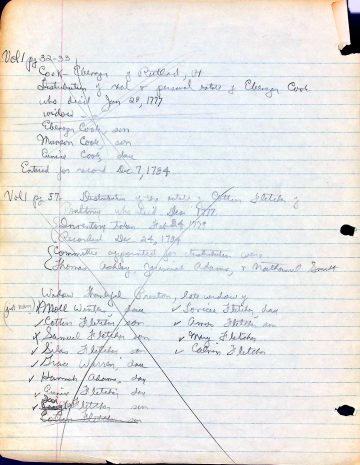 Vol 1 pg 32-33
Cook - Ebenezer of Rutland, Vt
Distribution of real & personal estate of Ebenezer Cook
who died Jan 29, 1777
widow -
Ebenezer Cook son
Munson Cook son
Eunice Cook dau
Entered for record Dec 7, 1784
Vol 1 pg 57. Distribution of estate of Cotton Fletcher of
who died Dec 1777
Inventory taken Feb 24 1779
Recorded Dec 24, 1784
Committee appointed for distribution were
Thomas Ashley Jeremiah Adams, & Nathaniel
Widow Thankful late widow of
Moll Winter dau
Cotton Fletcher son
Samuel Fletcher son
Silas Fletcher son
Grace Warren, dau
Hannah Adams, dau
Eunice Fletcher, dau
Fletcher son
Lovicee Fletcher, dau
Amos Fletcher son
Mary Fletcher
Calvin Fletcher